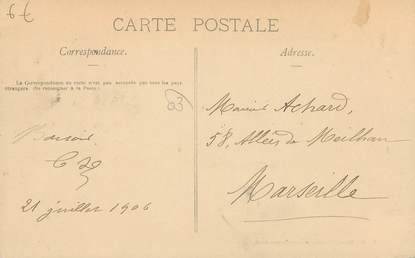 6€
CARTE POSTALE
Correspondance.
Adresse.
La Correspondance au recto n'est pas acceptée par tous les pays
étrangers (Se renseigner à la Poste).
03
Achard,
58, Allées de Meilhan
Marseille
21 juillet 1906